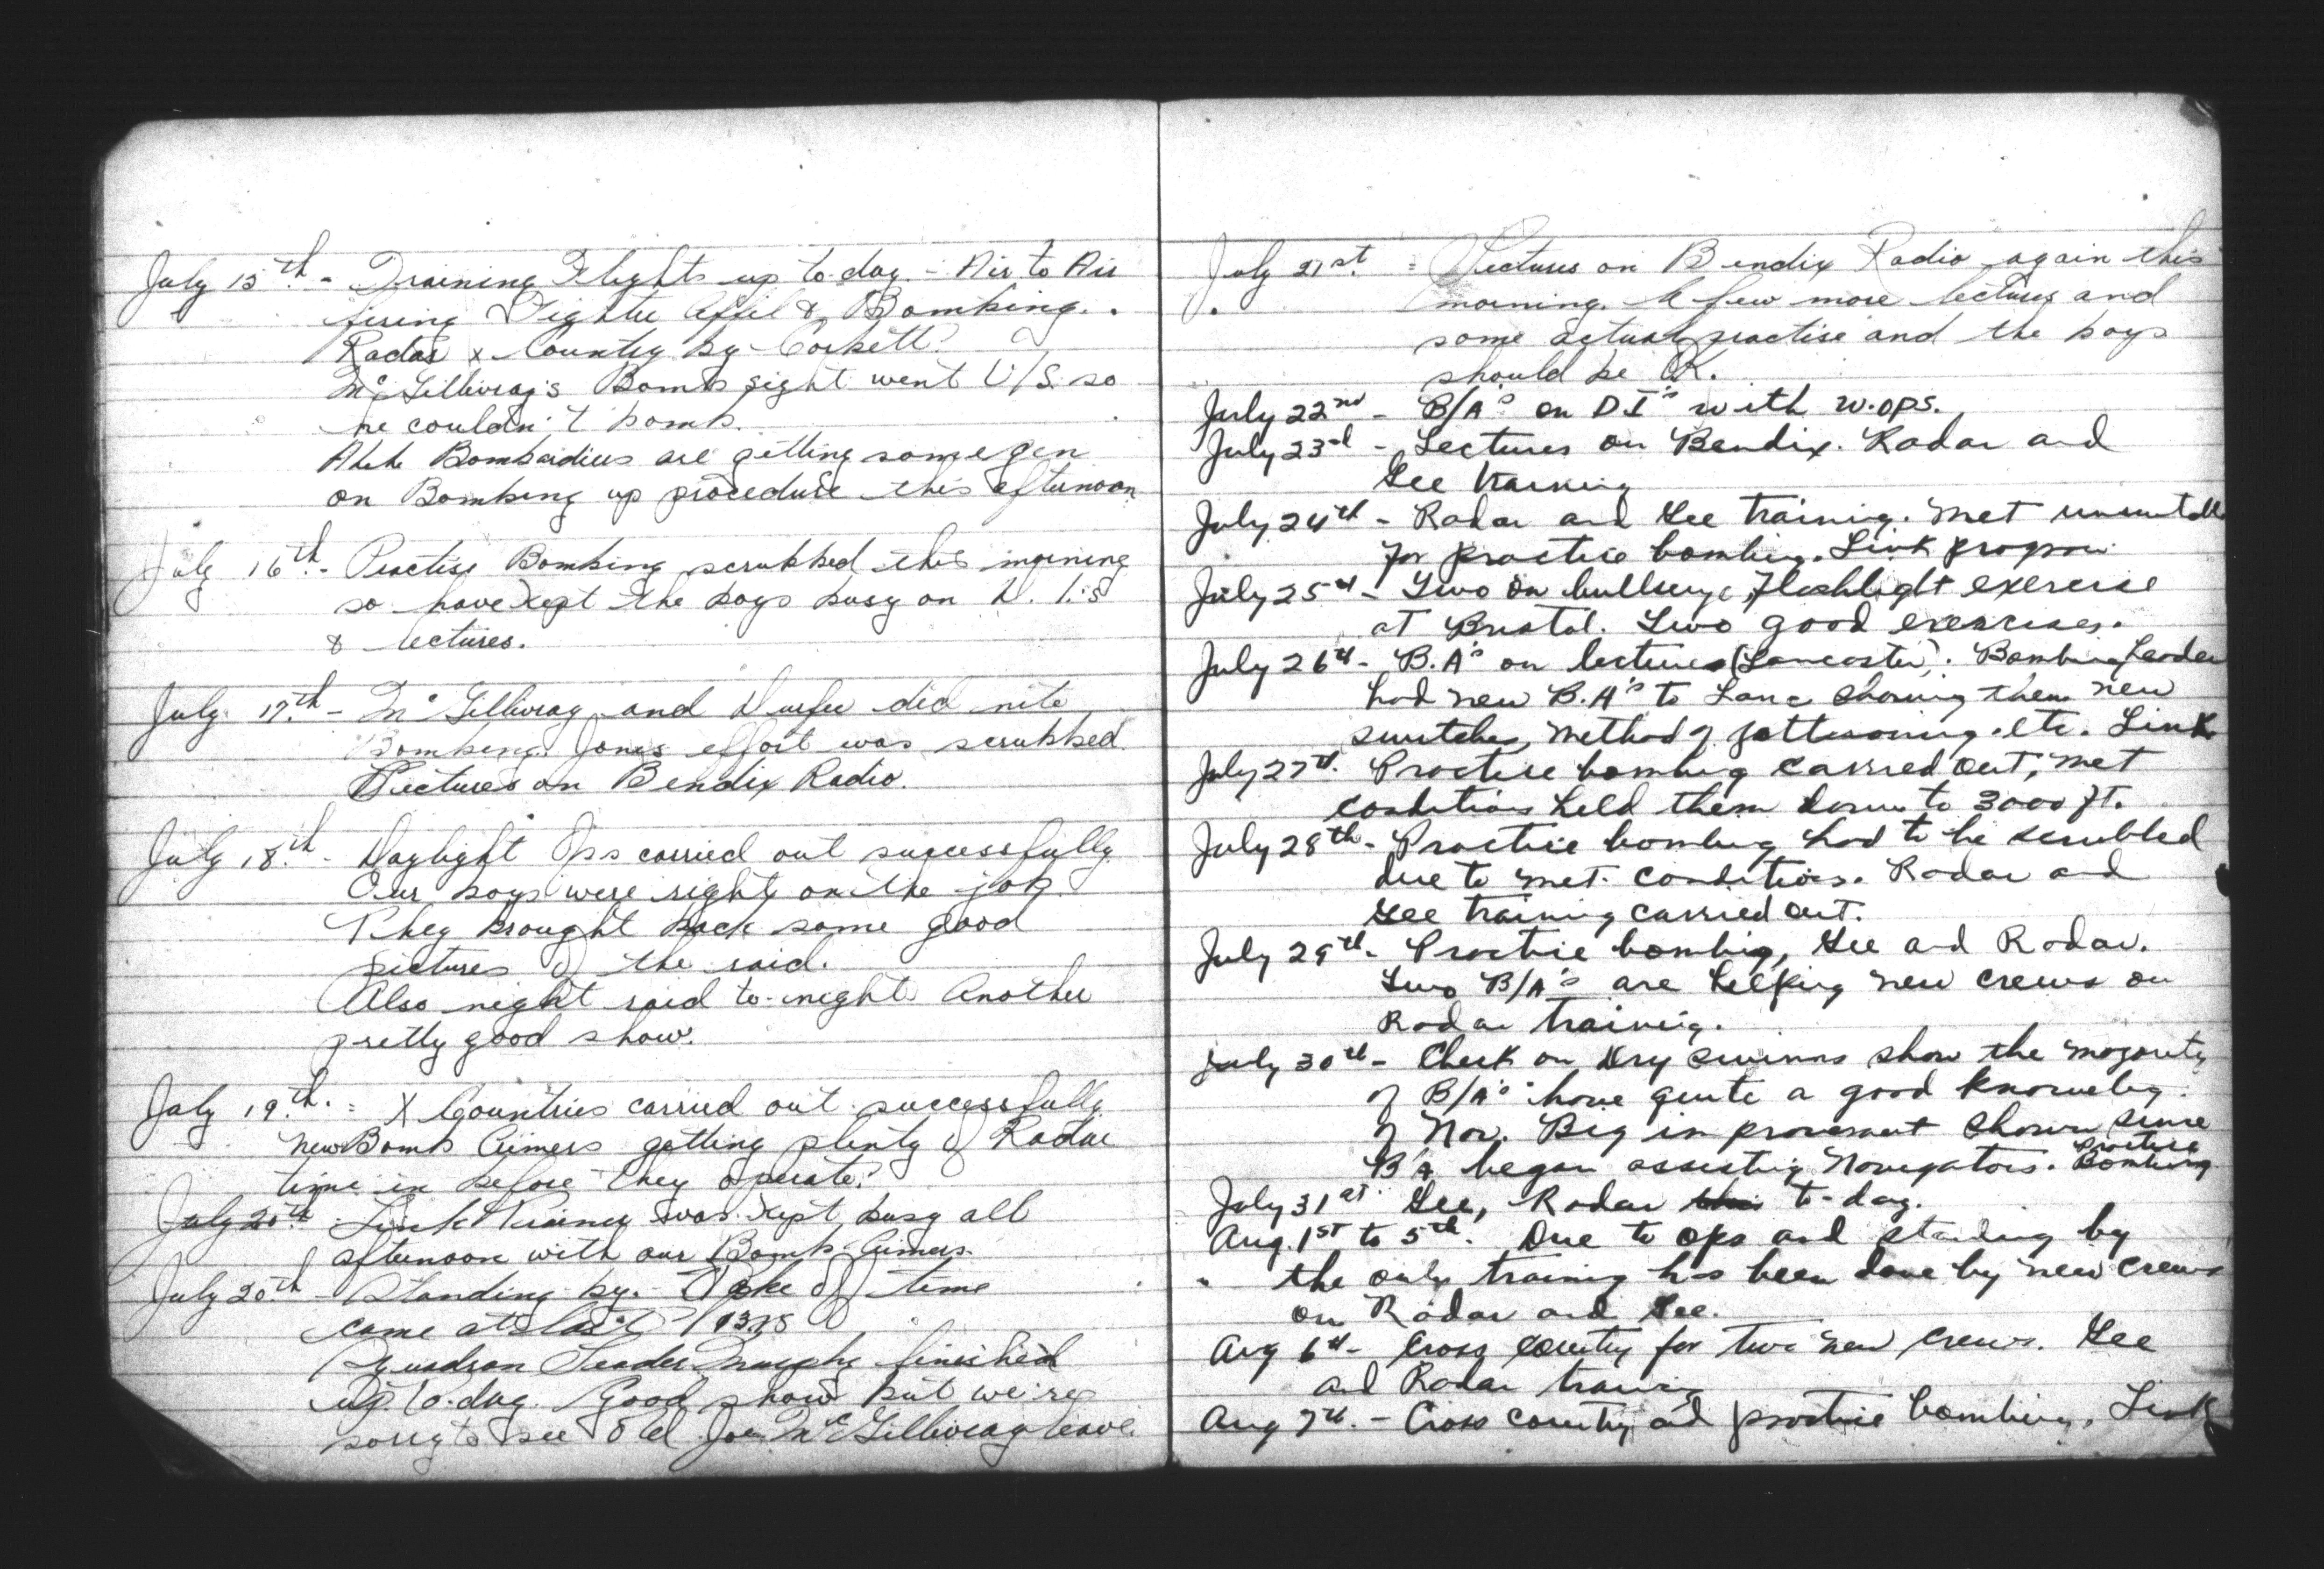 July 15th - Training Flights up to-day. - Air to Air
firing Fighter Affil & Bombing.
Radar x Country by Corbett.
McGillivray's Bomb sight went U/S. so
he couldn't bomb.
Bombardiers are getting some gen
on Bombing up procedure this afternoon
July 16th. - Practise Bombing scrubbed this morning
so have kept the boys busy on D. I.'s
& lectures.
July 17th - McGillivray and Durfee did nite
Bombing. Jones effort was scrubbed.
Lectures on Bendix Radio.
July 18th - Daylight Ops carried out successfully
Our boys were right on the job.
They brought back some good
pictures of the raid.
Also night raid to-night. Another
pretty good show.
July 19th. = X Countries carried out successfully
New Bomb Aimers getting plenty of Radar
time in before they operate.
July 20th - Link Trainer was kept busy all
afternoon with our Bomb Aimers.
July 20th - Standing by. - of time
came at last
Squadron Leader Murphy finished
up to-day. Good show but we're
sorry to see Old Joe McGillivray leave.
July 21st. = Lectures on Bendix Radio again this
morning. A few more lectures and
some actual practise and the boys
should be OK.
July 22nd - B/A's on D.I's with W.OPS.
July 23rd - Lectures on Bendix. Radar and
Gee training
July 24th - Radar and Gee training. Met unsuitable
for practice bombing. Link program
July 25th - Two on bullseye, flashlight exercise
at Bristol. Two good exercises.
July 26th - B.A's on lectures (Lancaster). Bombing Leader
had new B.A's to Lanc showing them new
switches, method of jettisoning etc. Link
July 27th. Practice bombing carried out, met
conditions held them down to 3000 ft.
July 28th - Practice bombing had to be scrubbed
due to met. conditions. Radar and
Gee training carried out.
July 29th - Practice bombing, Gee and Radar.
Two B/A's are helping new crews on
Radar training.
July 30th - Check on Dry swims show the majority
of B/A's have quite a good knowledg
of Nav. Big improvement shown since
B/A began assisting Navigators. Practice Bombing
July 31st. Gee, Radar this to-day.
Aug. 1st to 5th. Due to ops and standing by
" the only training has been done by new crews
on Radar and Gee.
Aug 6th - Cross country for two new crews. Gee
and Radar training
Aug 7th. - Cross country and practice bombing. Link